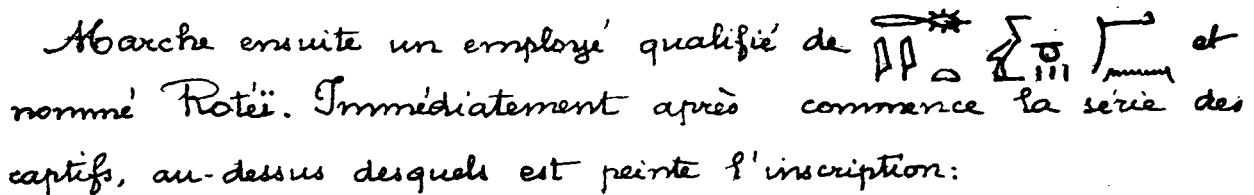 Marche ensuite un employé qualifié de et
nommé Rotéï. Immédiatement après commence la série des
captifs, au-dessus desquels est peinte l'inscription: